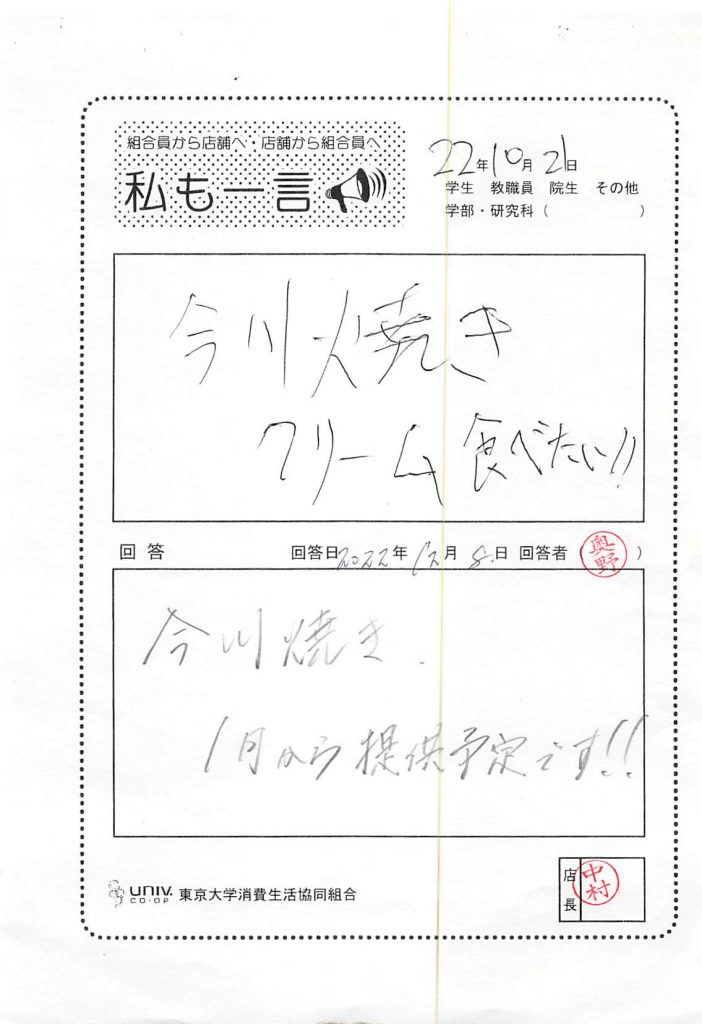 組合員から店舗へ・店舗から組合員へ
私も一言
22年10月21日
学生 教職員 院生 その他
学部・研究科( )
今川焼き
クリーム食べたい!!
回答 回答日2022年12月8日 回答者(奥野)
今川焼き.
1月から提供予定です!!
UNIV.
CO・OP
東京大学消費生活協同組合
店長 中村